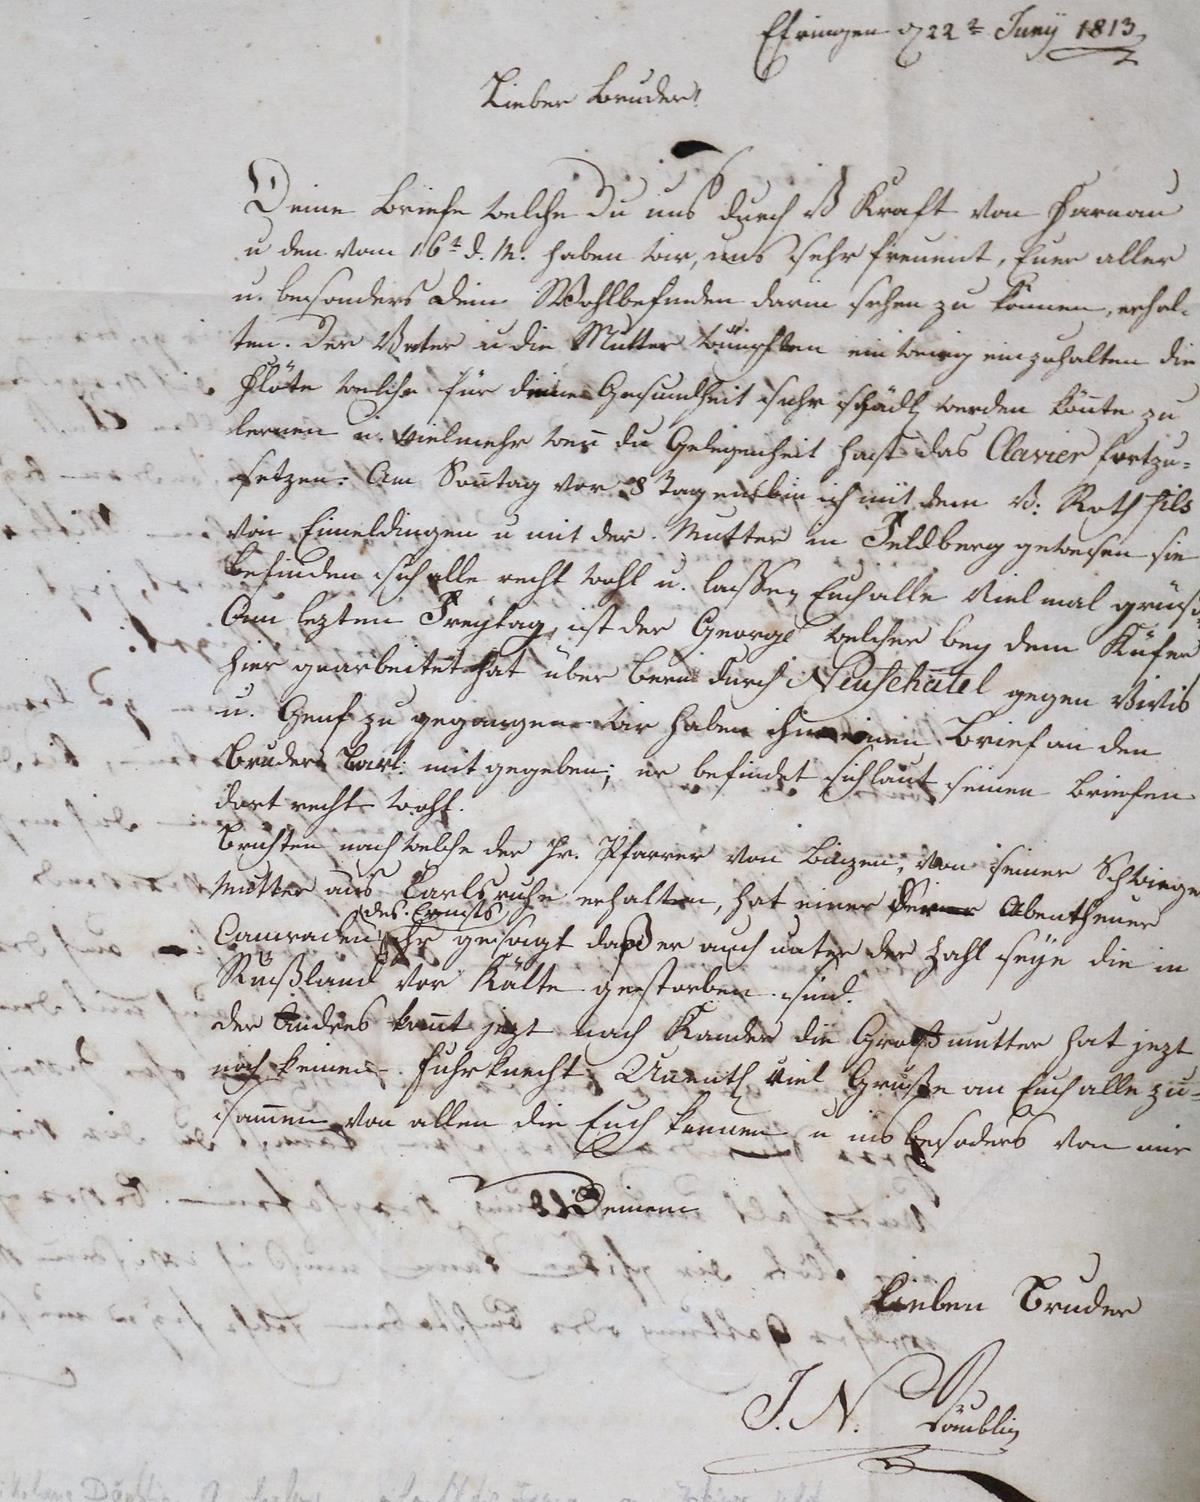 Efringen d 22t Junÿ 1813
Lieber Bruder!
Deine Briefe welche Du uns durch H Kraft von Harnau
u den vom 16t d. M. haben wir, uns sehr freuent, Euer aller
u. besonders Dein Wohlbefinden darin sehen zu können, erhal-
ten. Der Vater u die Mutter wünschten ein wenig einzuhalten die
Flöte welche für deine Gesundheit sehr schädl. werden könte zu
lernen u. vielmehr wen du Gelegenheit hast das Clavier fortzu-
setzen. Am Sontag vor 8 Tagen bin ich mit dem H. Roth fils
von Eimeldingen u mit der Mutter in Feldberg gewesen sie
befinden sich alle recht wohl u. lassen Euch alle viel mal grüse
Am lezten Freÿtag, ist der George welcher beÿ dem Küfer
hier gearbeitet hat über Bern durch Neuschatel gegen Vivis
u. Genf zu gegangen wir haben ihm einen Brief an den
Bruder Carl: mit gegeben; er befindet sich laut seinen Briefen
dort recht wohl.
nach welche der Hr. Pfarrer von Binzen, von seiner Schwieger
Mutter aus Carlsruhe erhalten, hat einer Abentheuer
des Ernsts
Camraden gesagt daß er auch unter der Zahl seÿe die in
Rußland vor Kälte gestorben sind.
der Andres komt jezt nach Kander die Großmutter hat jezt
noch keinen Fuhrknecht. viel Grüße an Euch alle zu-
samen von allen die Euch kennen u insbesoders von mir
Deinem
Lieben Bruder
J. N. Däublin